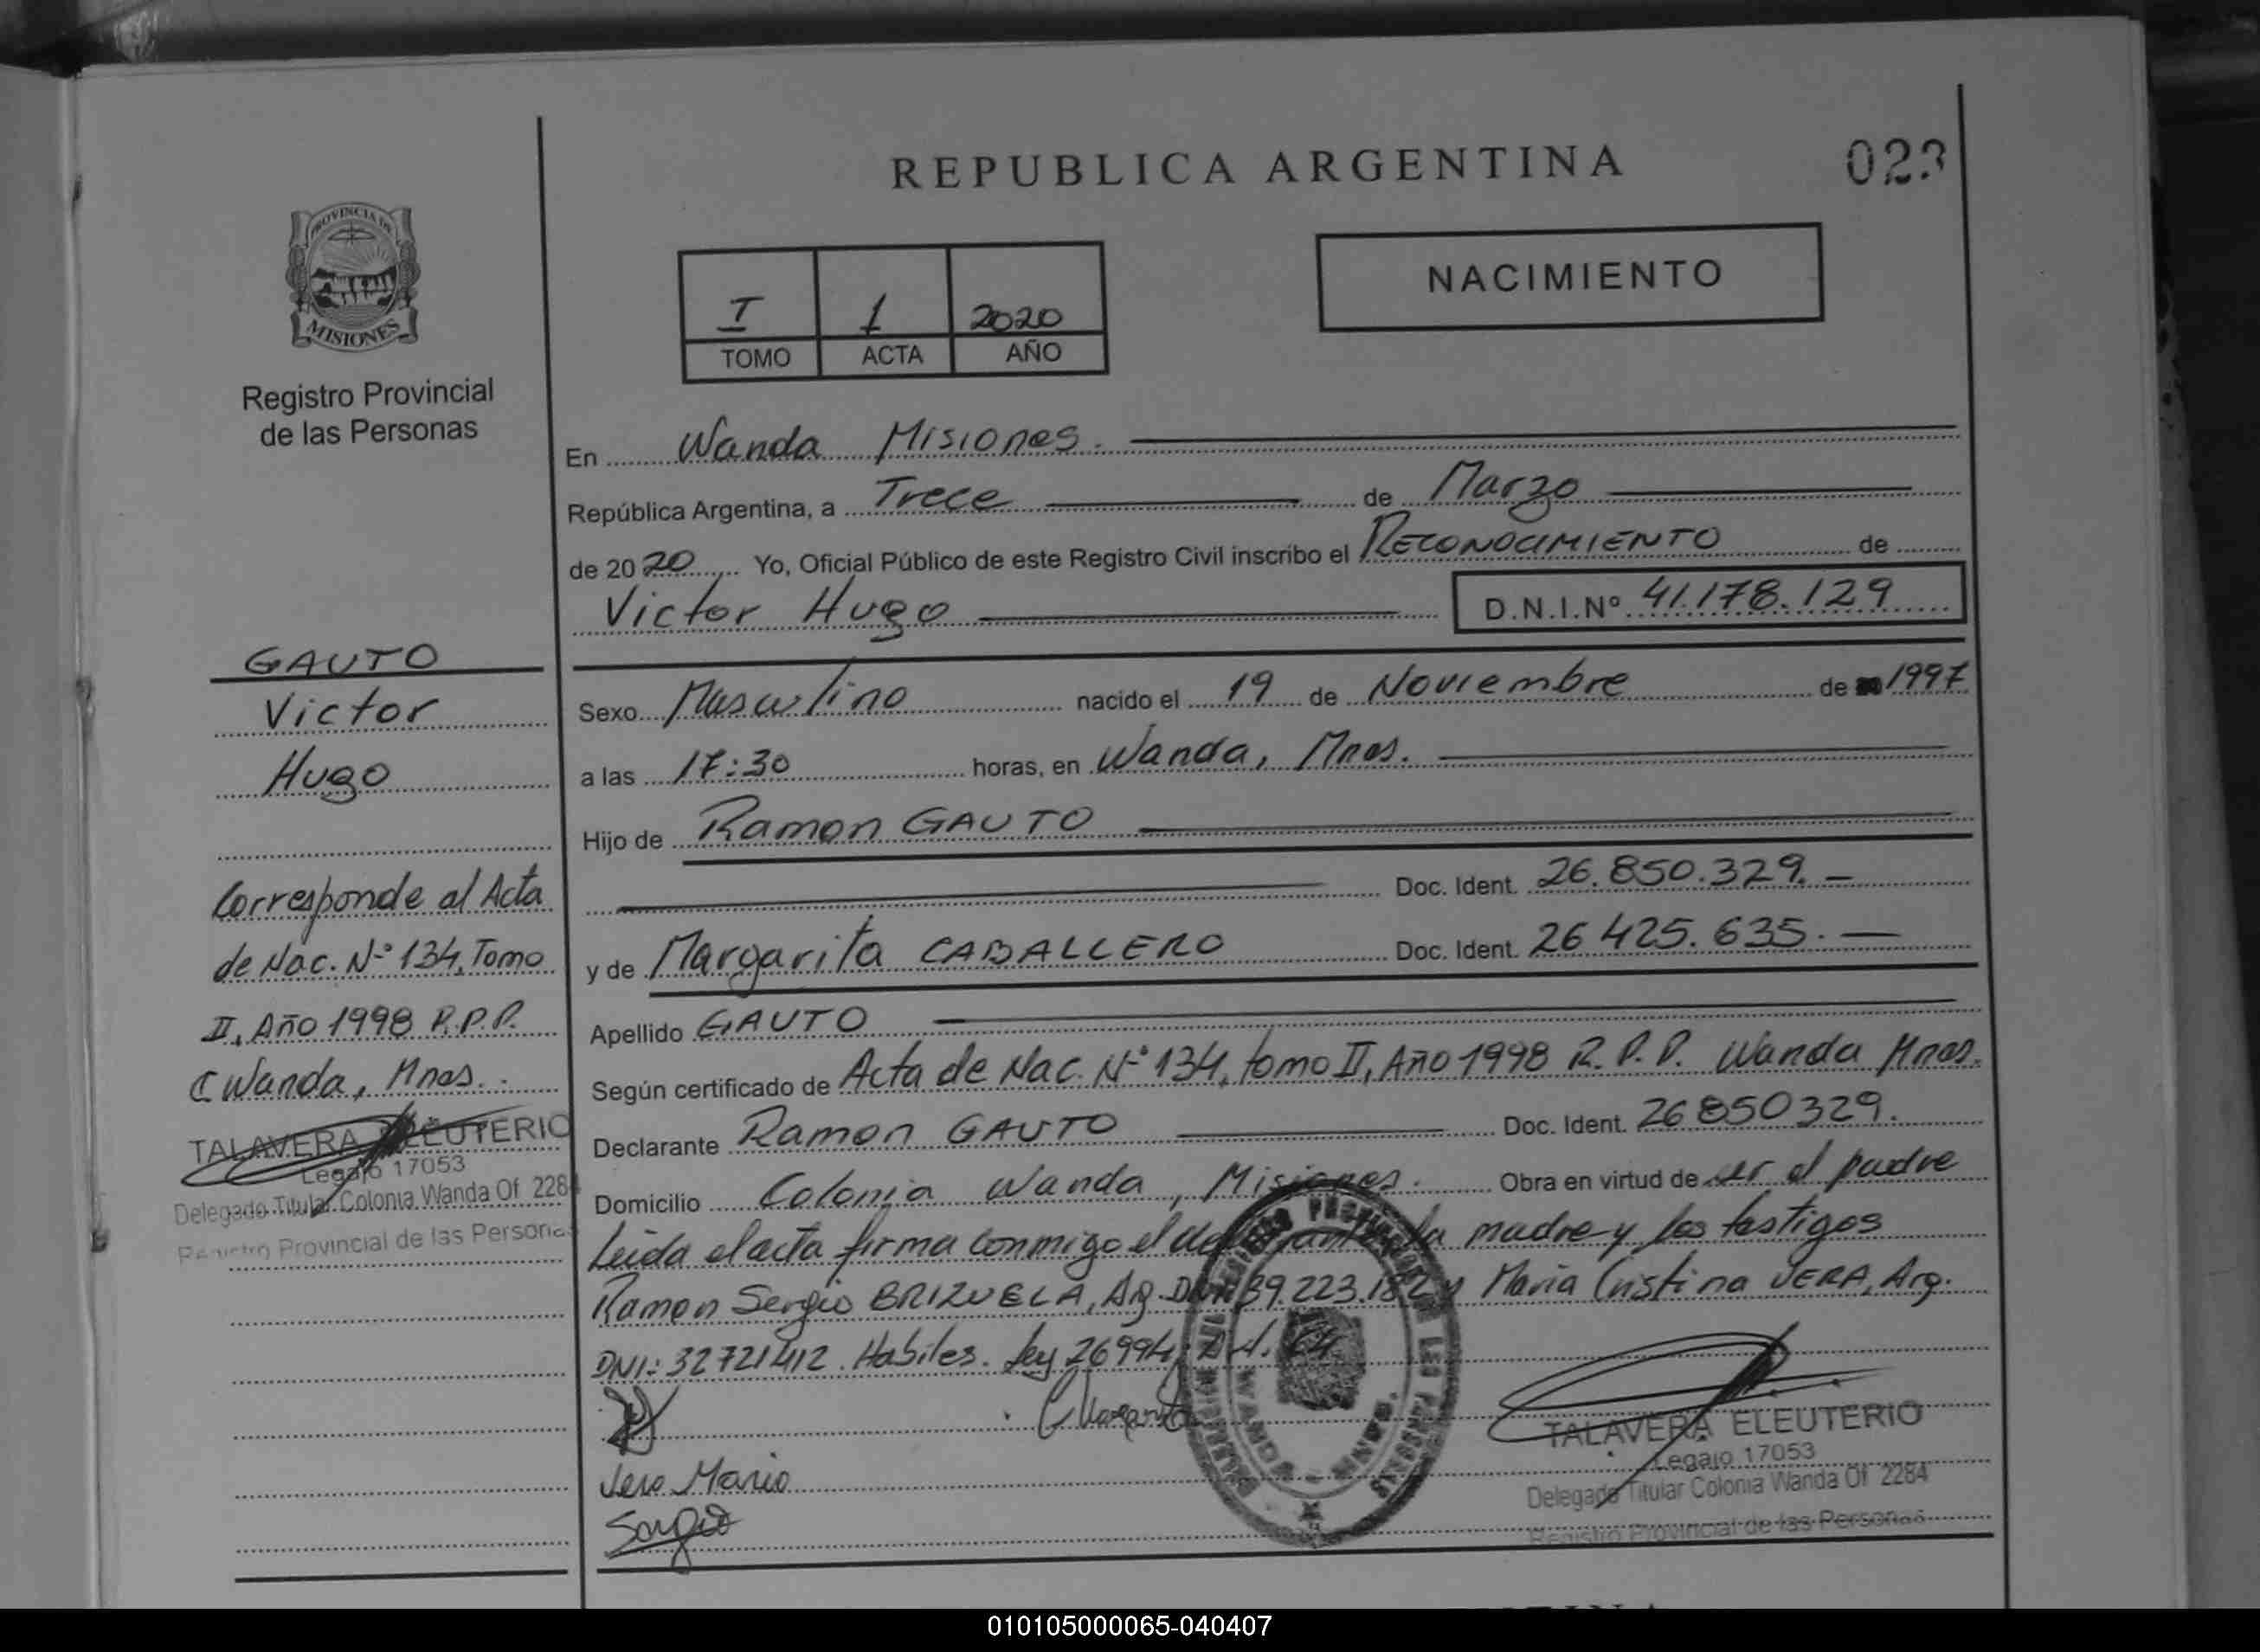 REPUBLICA ARGENTINA
023
PROVINCIA DE
MISIONES
Registro Provincial
de las Personas
I 1 2020
TOMO ACTA AÑO
NACIMIENTO
En Wanda Misiones.
República Argentina, a Trece de Marzo
de 2020 Yo, Oficial Público de este Registro Civil inscribo el RECONOCIMIENTO de
Victor Hugo D.N.I.Nº 41.178.129
GAUTO
Victor
Hugo
Corresponde al Acta
de Nac. Nº 134, Tomo
II, Año 1998 R.P.P.
Wanda, Mnes.
TALAVERA ELEUTERIO
Legajo 17053
Delegado Titular Colonia Wanda Of 2284
Registro Provincial de las Personas
Sexo Masculino nacido el 19 de Noviembre de 1997
a las 17:30 horas, en Wanda, Mnes.
Hijo de Ramon GAUTO
Doc. Ident. 26.850.329. –
y de Margarita CABALLERO Doc. Ident. 26 425. 635. –
Apellido GAUTO
Según certificado de Acta de Nac. Nº 134, tomo II, Año 1998 R.P.P. Wanda Mnes.
Declarante Ramon GAUTO Doc. Ident. 26850329.
Domicilio Colonia Wanda, Misiones. Obra en virtud de ser el padre
Leida el acta firma conmigo el la madre y los testigos
Ramon Sergio BRIZUELA, Arg. DNI: 39.223.182 y Maria Cristina VERA, Arg.
DNI: 32721412. Habiles. Ley 26994
Margarita
Vera Maria
Sergio
WANDA - MNES.
TALAVERA ELEUTERIO
Legajo 17053
Delegado Titular Colonia Wanda Of 2284
Registro Provincial de las Personas
010105000065-040407